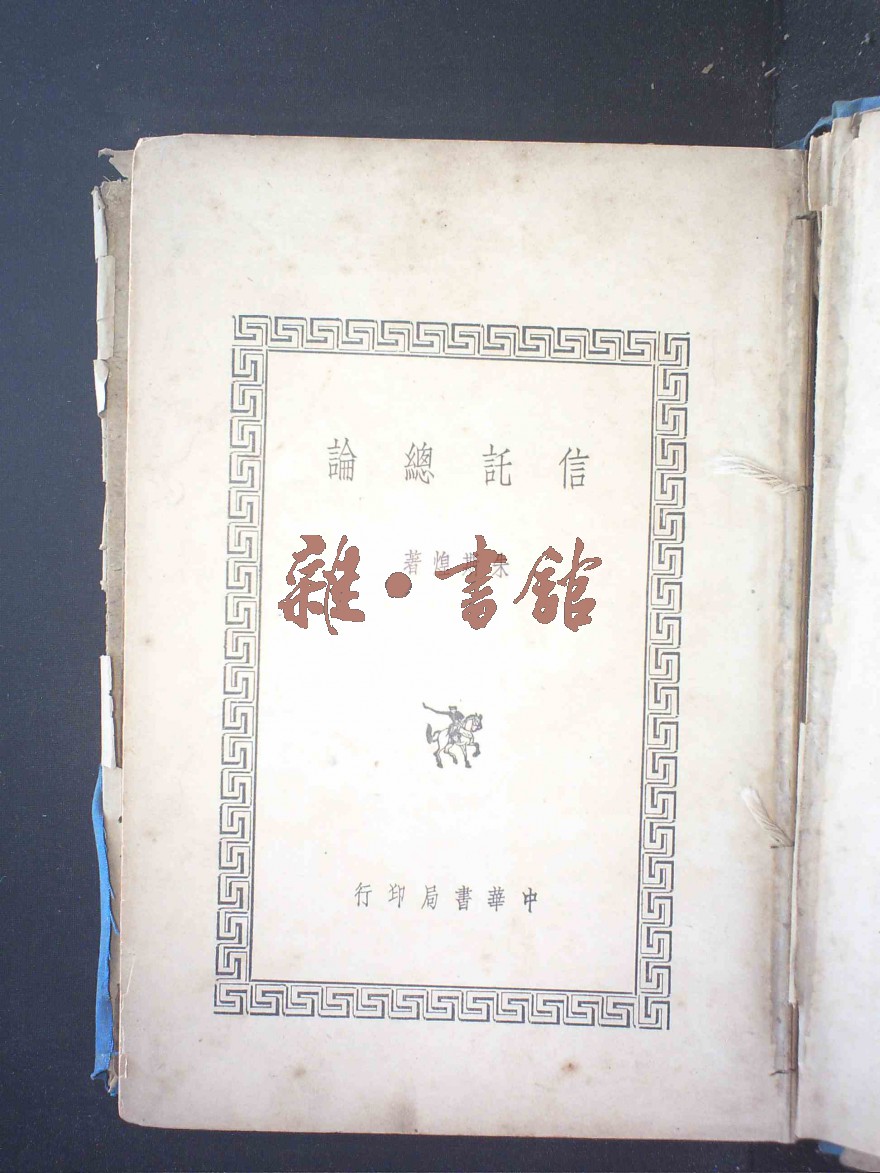 信託總論
朱斯煌著
雜·書館
中華書局印行